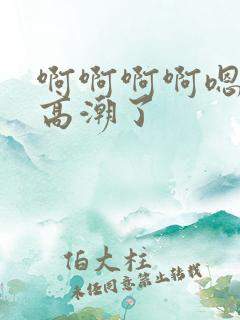 啊啊啊啊嗯
高潮了
佰大柱
未经同意禁止转载